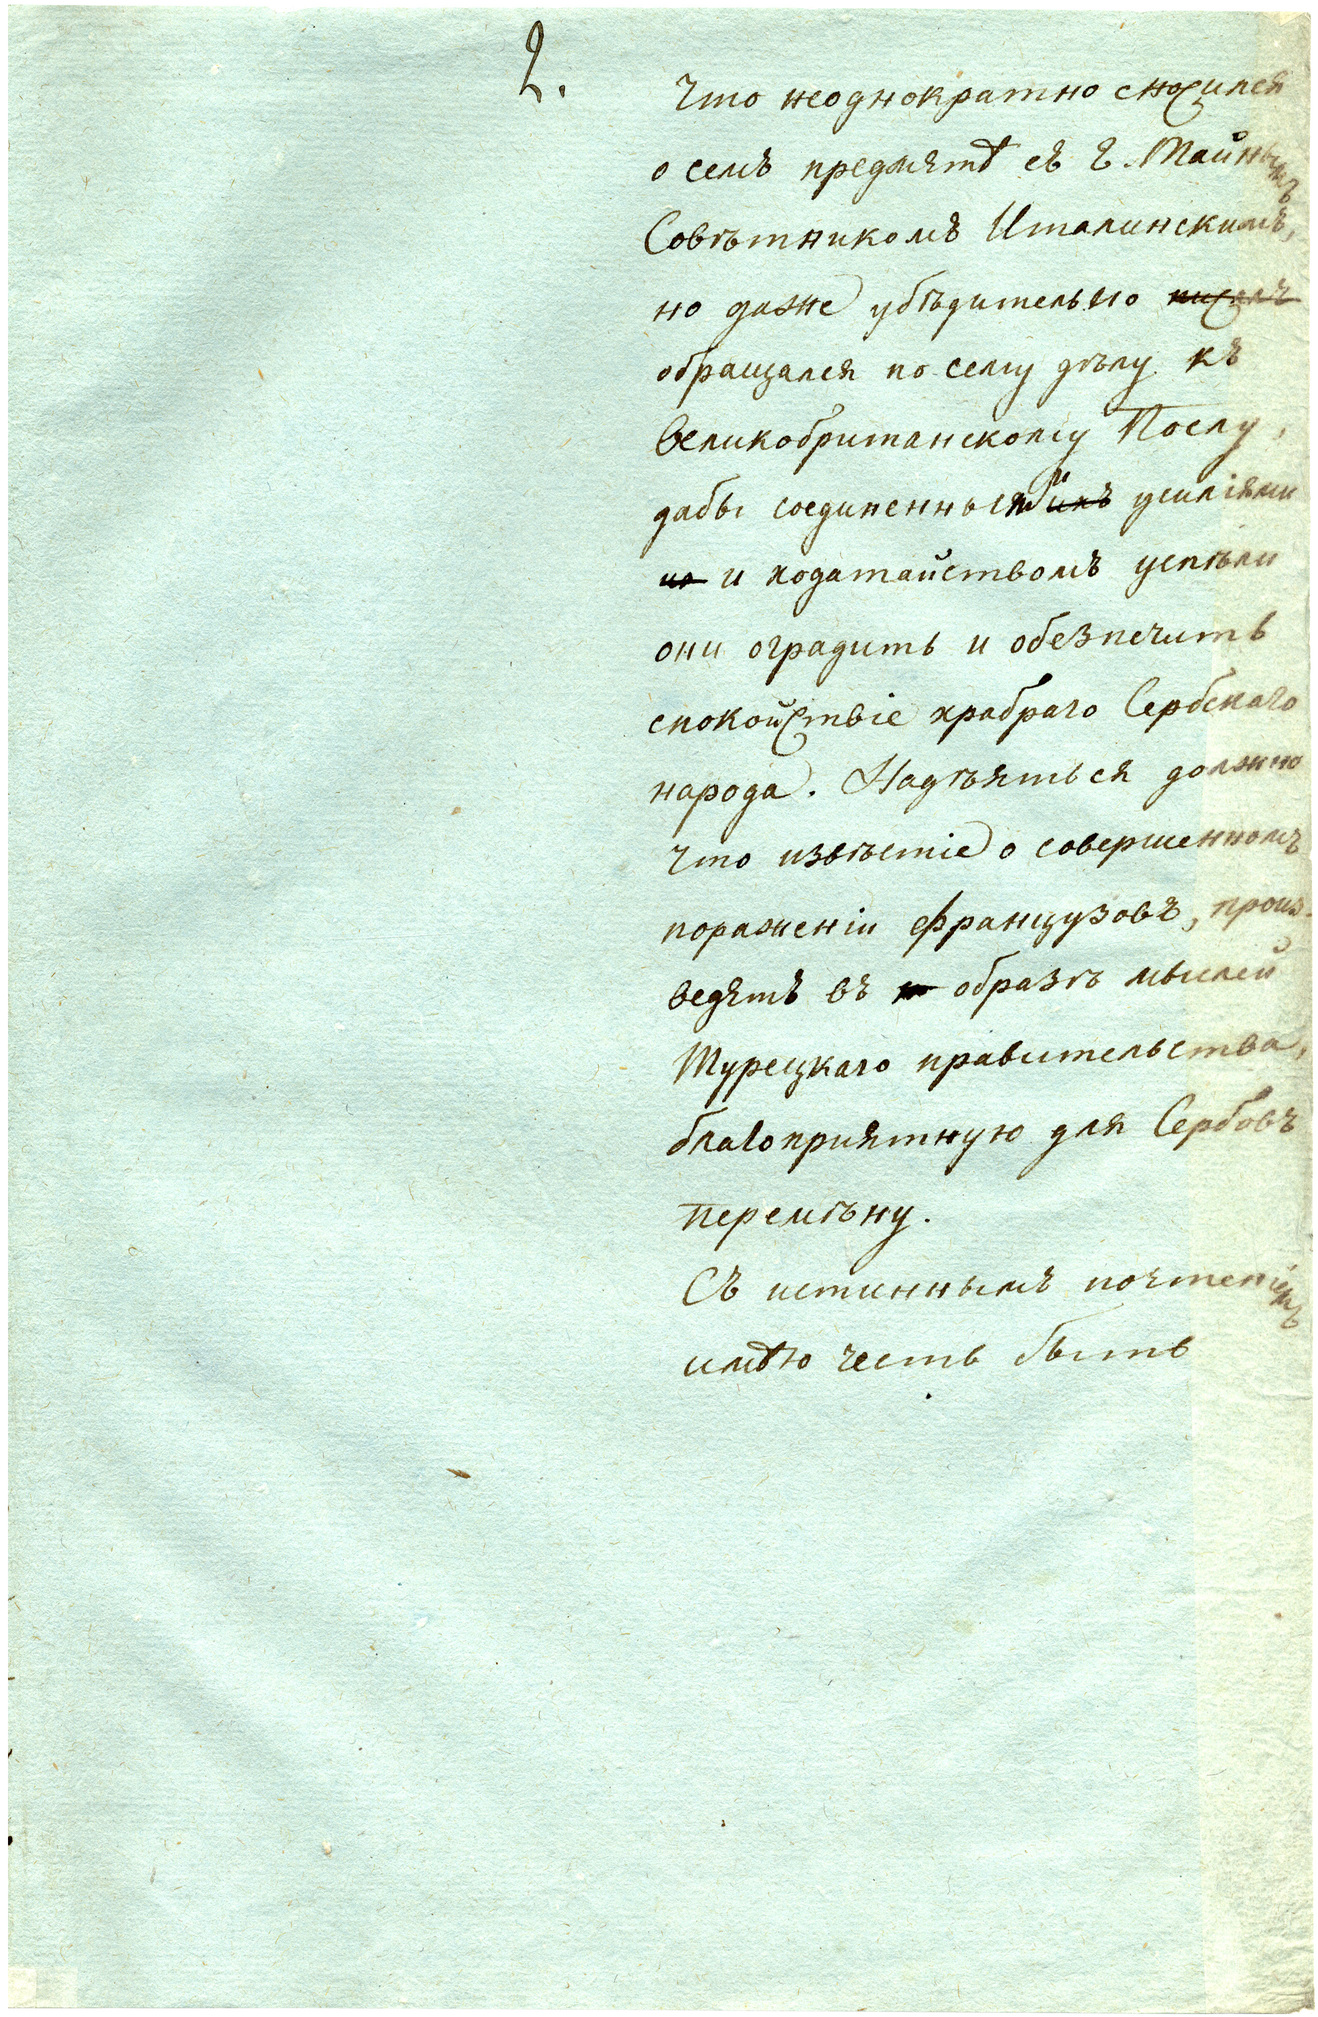 2.
что неоднократно сносился
о семъ предмятѣ съ Г. Тайнымъ
Совѣтникомъ Италинскимъ,
но даже убѣдительно писалъ
обращался по сему дѣлу къ
Великобританскому Послу,
дабы соединенными ихъ усиліями
и ходатайствомъ успѣли
они оградить и обезпечить
спокойствіе храбраго Сербскаго
народа. Надѣяться должно
что извѣстіе о совершенномъ
пораженіи французовъ, произ-
ведятъ въ образѣ мыслей
Турецкаго правительства,
благоприятную для Сербовъ
перемѣну.
Съ истиннымъ почтеніемъ
имѣю честь быть